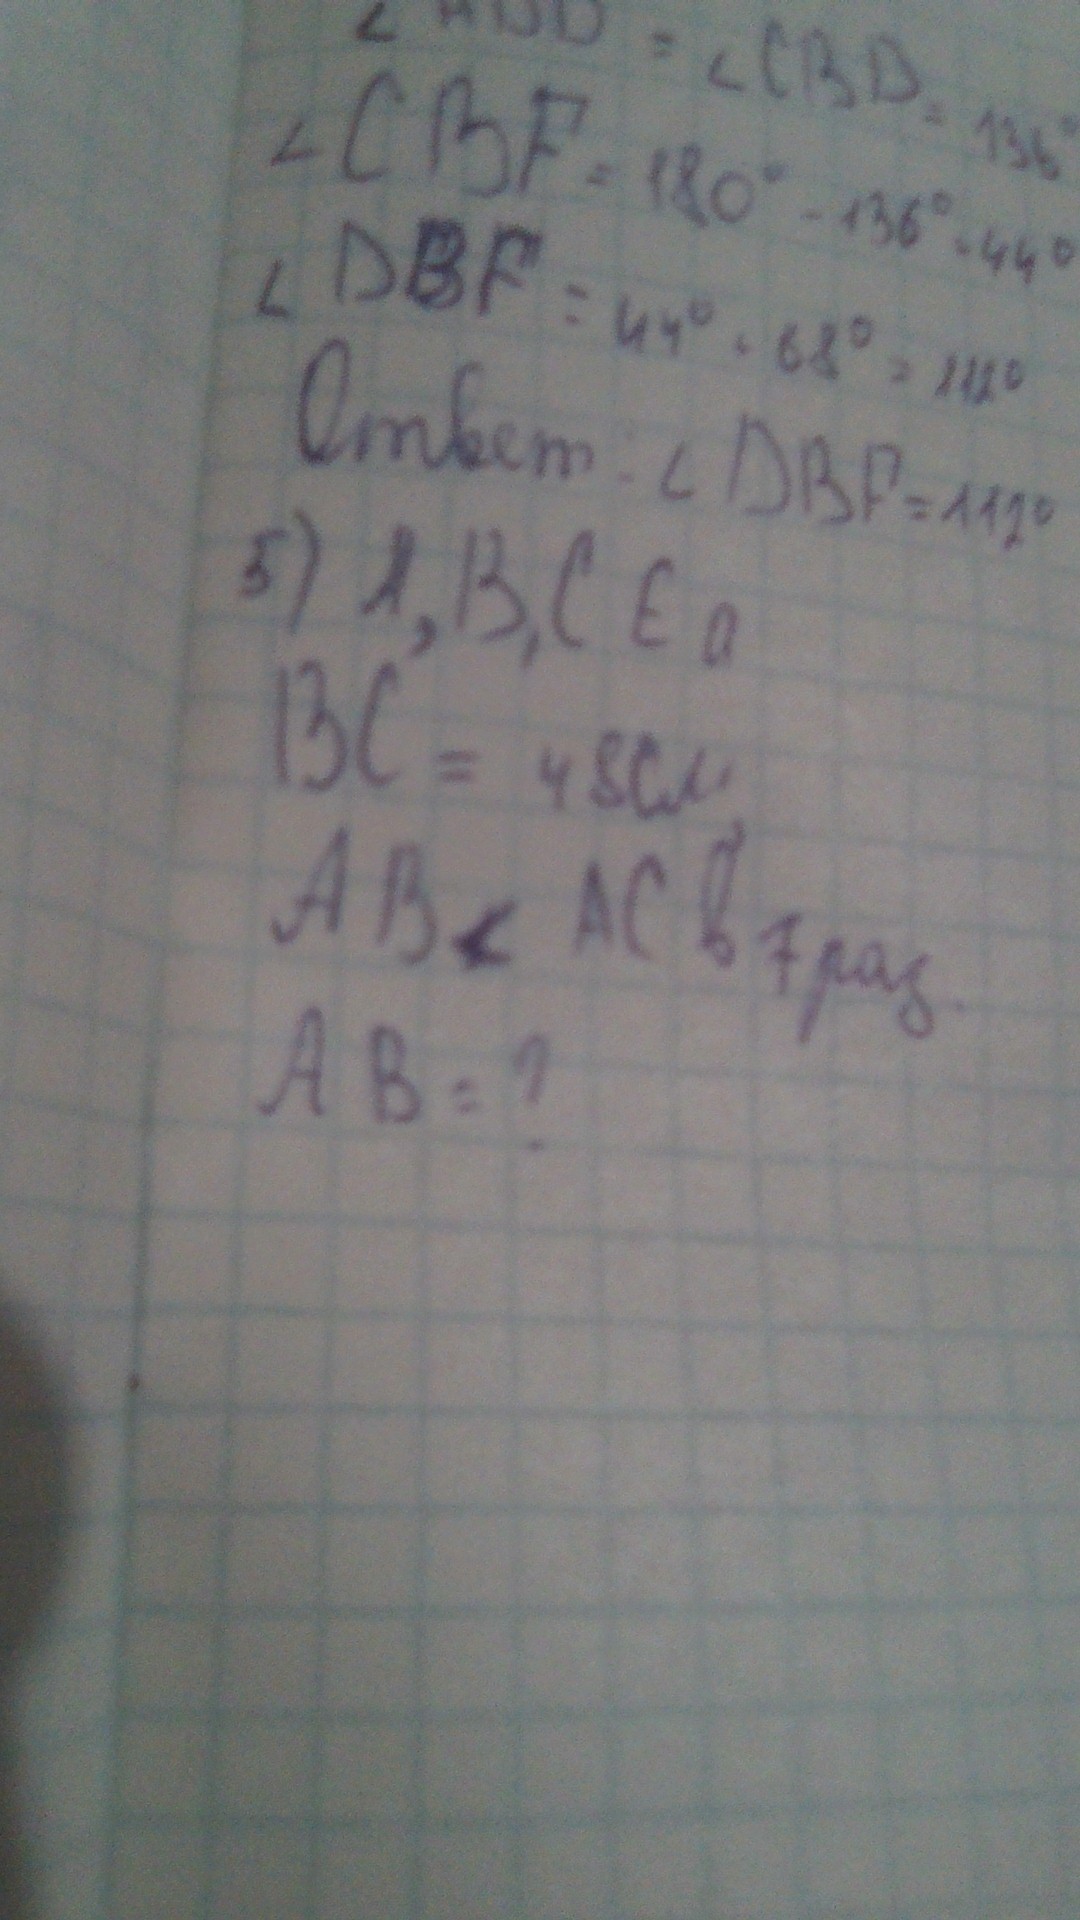 ∠CBD = 136°
∠CBF = 180° - 136° = 44°
∠DBF = 44° + 68° = 112°
Ответ: ∠DBF = 112°
5) A, B, C ∈ a
BC = 48см,
AB < AC в 7 раз.
AB = ?